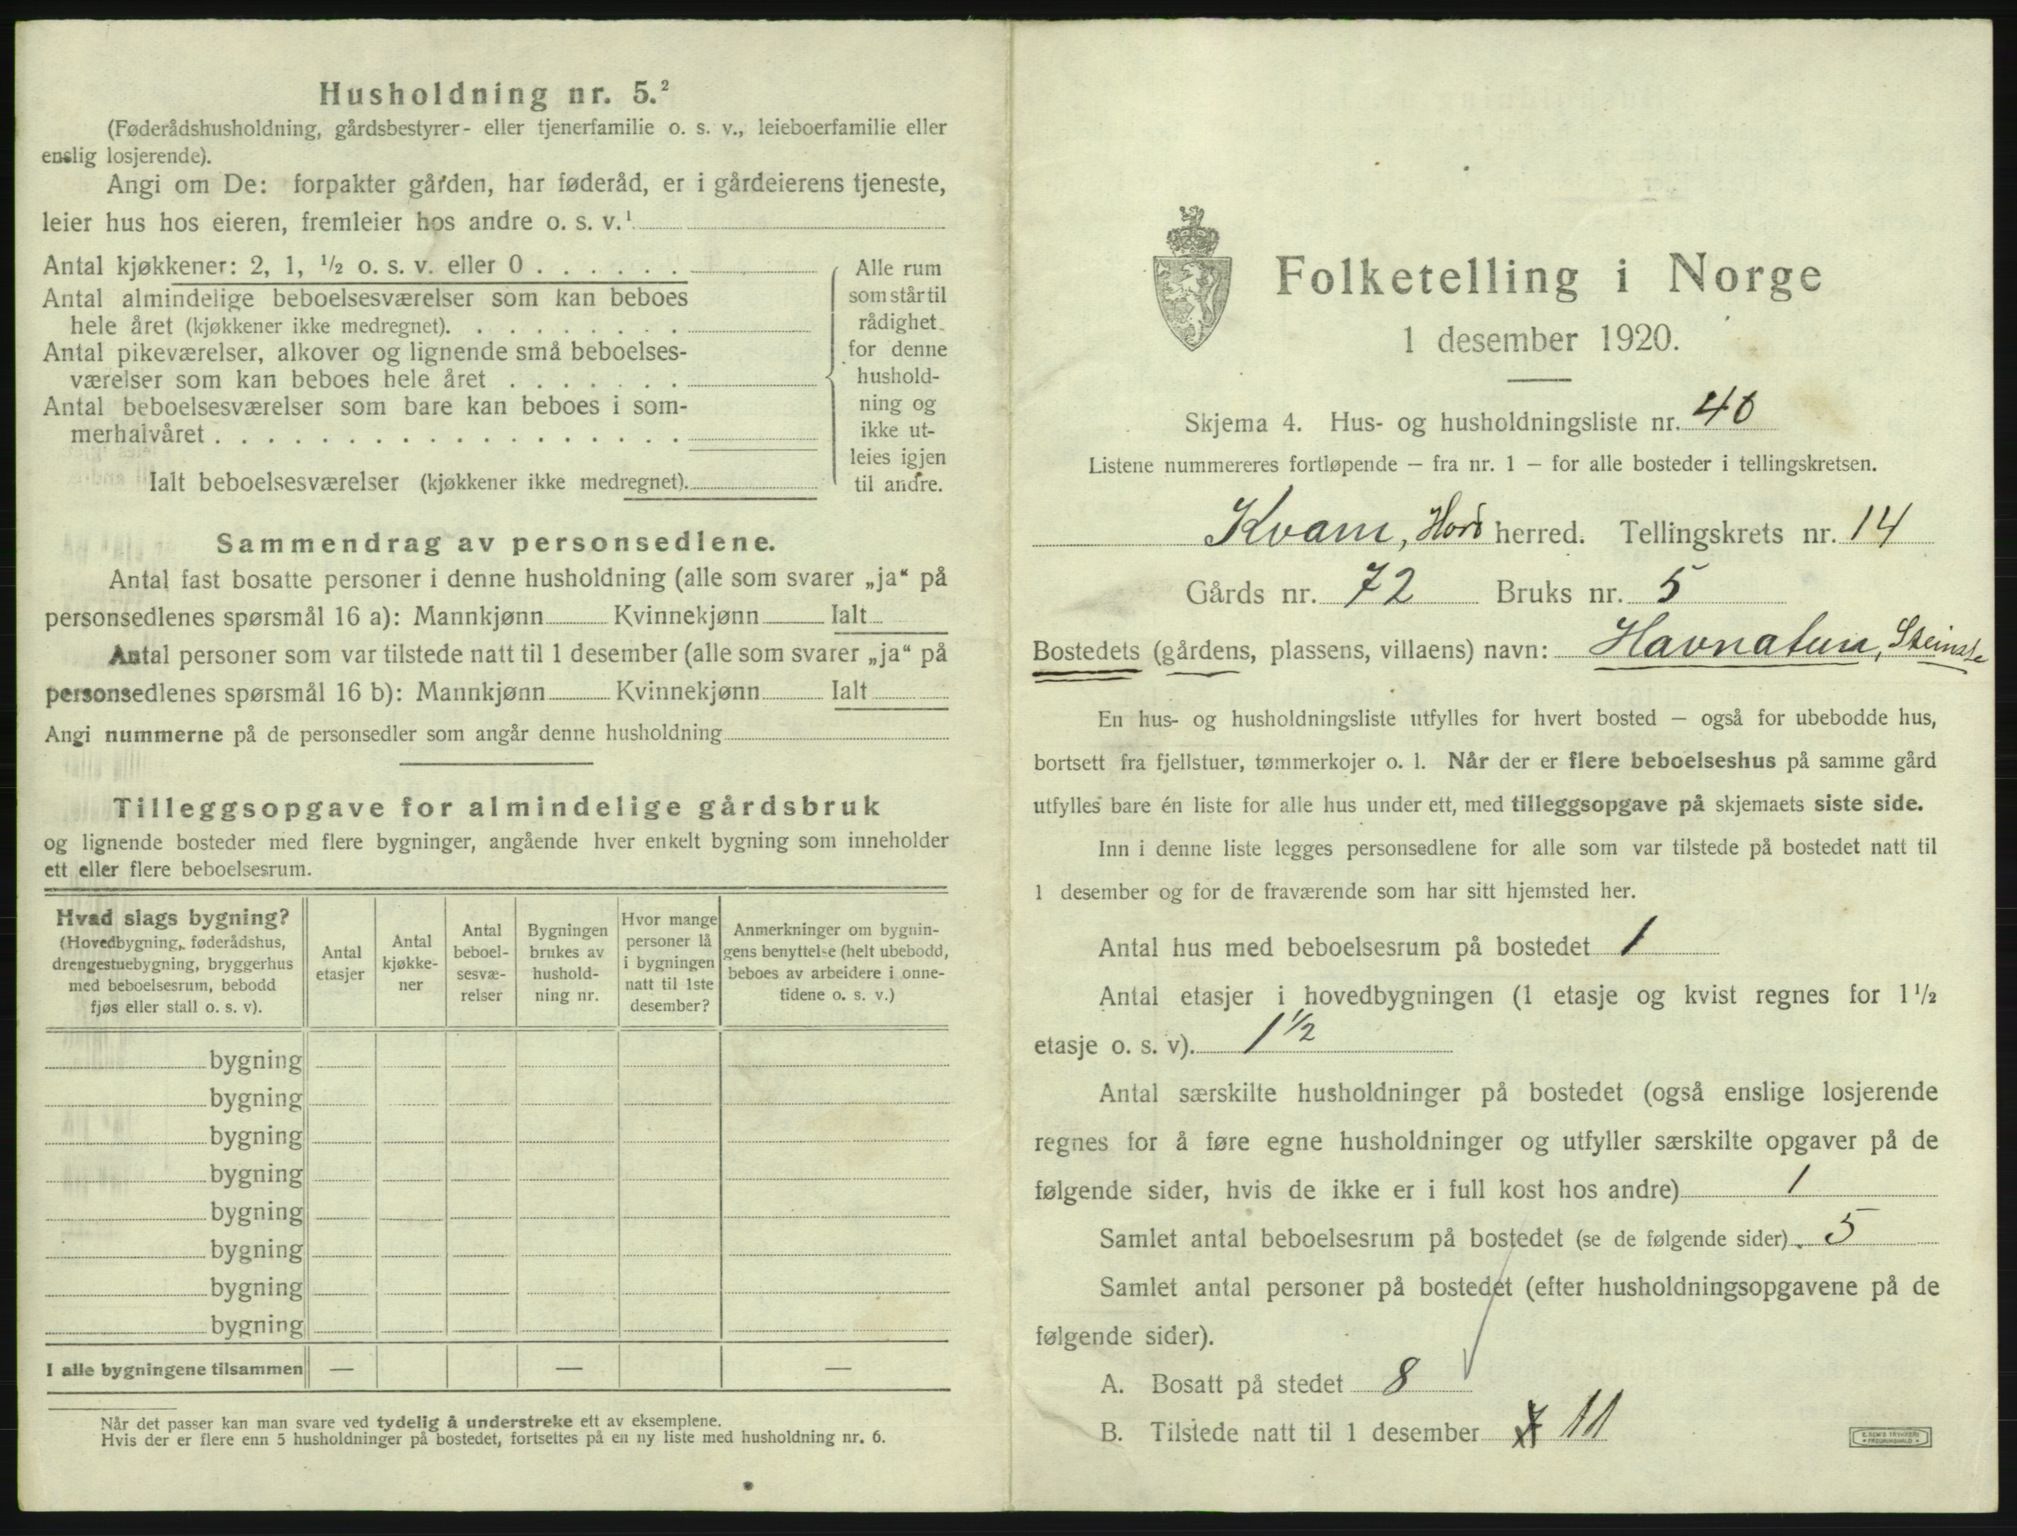 Husholdning nr. 5.²
(Føderådshusholdning, gårdsbestyrer- eller tjenerfamilie o. s. v., leieboerfamilie eller
enslig losjerende).
Angi om De: forpakter gården, har føderåd, er i gårdeierens tjeneste,
leier hus hos eieren, fremleier hos andre o. s. v.¹
Antal kjøkkener: 2, 1, ½ o. s. v. eller 0 . . . . . .
Antal almindelige beboelsesværelser som kan beboes
hele året (kjøkkener ikke medregnet). . . . . . . . .
Antal pikeværelser, alkover og lignende små beboelses-
værelser som kan beboes hele året . . . . . . .
Antal beboelsesværelser som bare kan beboes i som-
merhalvåret . . . . . . . . . . . . . . . . . .
Ialt beboelsesværelser (kjøkkener ikke medregnet).
Alle rum
som står til
rådighet
for denne
hushold-
ning og
ikke ut-
leies igjen
til andre.
Sammendrag av personsedlene.
Antal fast bosatte personer i denne husholdning (alle som svarer „ja“ på
personsedlenes spørsmål 16 a): Mannkjønn Kvinnekjønn Ialt
Antal personer som var tilstede natt til 1 desember (alle som svarer „ja“ på
personsedlenes spørsmål 16 b): Mannkjønn Kvinnekjønn Ialt
Angi nummerne på de personsedler som angår denne husholdning
Tilleggsopgave for almindelige gårdsbruk
og lignende bosteder med flere bygninger, angående hver enkelt bygning som inneholder
ett eller flere beboelsesrum.
Hvad slags bygning?
(Hovedbygning, føderådshus,
drengestuebygning, bryggerhus
med beboelsesrum, bebodd
fjøs eller stall o. s. v).
Antal
etasjer
Antal
kjøkke-
ner
Antal
beboel-
sesvæ-
relser
Bygningen
brukes av
hushold-
ning nr.
Hvor mange
personer lå
i bygningen
natt til 1ste
desember?
Anmerkninger om bygnin-
gens benyttelse (helt ubebodd,
beboes av arbeidere i onne-
tidene o. s. v.)
bygning
bygning
bygning
bygning
bygning
bygning
bygning
bygning
I alle bygningene tilsammen — — —
Når det passer kan man svare ved tydelig å understreke ett av eksemplene.
Hvis der er flere enn 5 husholdninger på bostedet, fortsettes på en ny liste med husholdning nr. 6.
Folketelling i Norge
1 desember 1920.
Skjema 4. Hus- og husholdningsliste nr. 40
Listene nummereres fortløpende – fra nr. 1 – for alle bosteder i tellingskretsen.
Kvam, Hord herred. Tellingskrets nr. 14
Gårds nr. 72 Bruks nr. 5
Bostedets (gårdens, plassens, villaens) navn: Havnatun,
En hus- og husholdningsliste utfylles for hvert bosted – også for ubebodde hus,
bortsett fra fjellstuer, tømmerkojer o. l. Når der er flere beboelseshus på samme gård
utfylles bare én liste for alle hus under ett, med tilleggsopgave på skjemaets siste side.
Inn i denne liste legges personsedlene for alle som var tilstede på bostedet natt til
1 desember og for de fraværende som har sitt hjemsted her.
Antal hus med beboelsesrum på bostedet 1
Antal etasjer i hovedbygningen (1 etasje og kvist regnes for 1½
etasje o. s. v). 1½
Antal særskilte husholdninger på bostedet (også enslige losjerende
regnes for å føre egne husholdninger og utfyller særskilte opgaver på de
følgende sider, hvis de ikke er i full kost hos andre) 1
Samlet antal beboelsesrum på bostedet (se de følgende sider). 5
Samlet antal personer på bostedet (efter husholdningsopgavene på de
følgende sider).
A. Bosatt på stedet 8
B. Tilstede natt til 1 desember 11